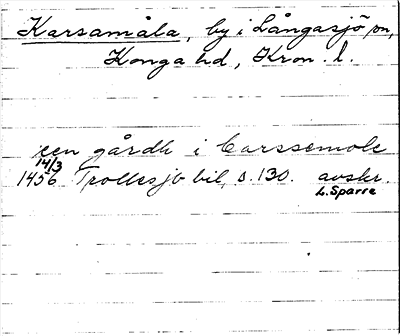 Karsamåla, by i Långasjö sn,
Konga hd, Kron. l.
een gårdh i Carssemole
14/3
1456 Trollesjö bil, s. 130. avskr.
L. Sparre